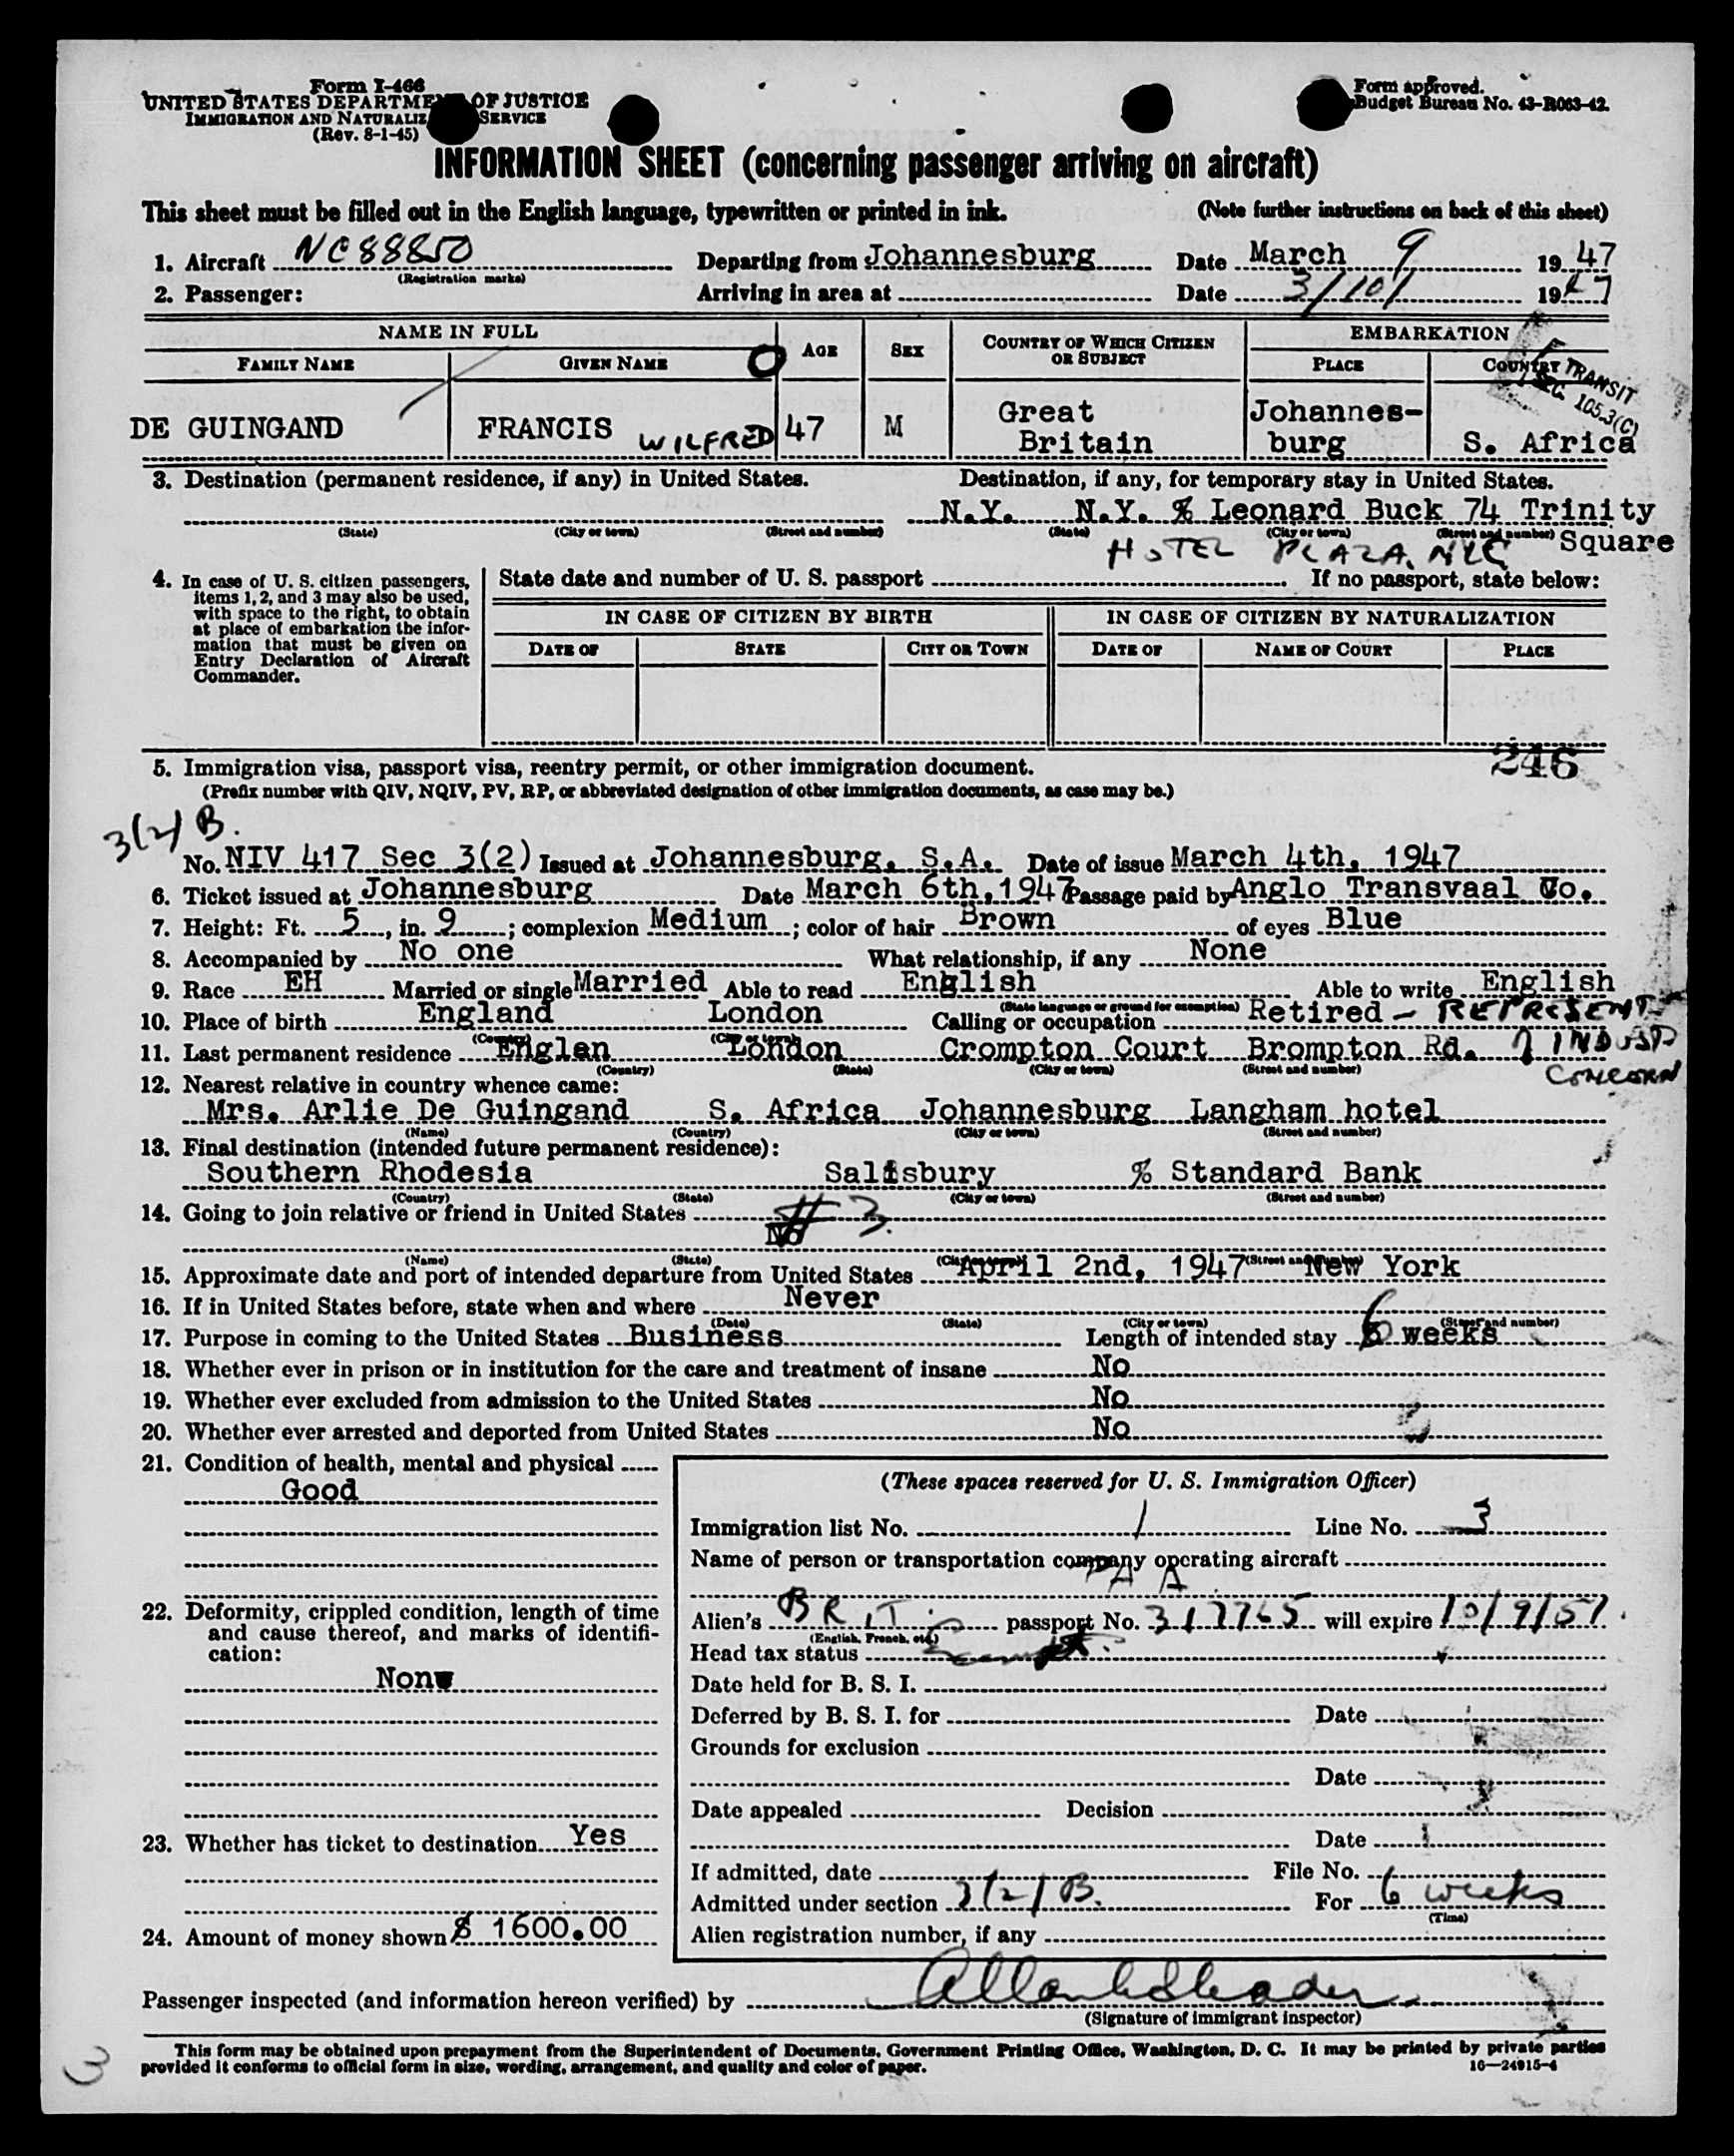 Form I-466
UNITED STATES DEPARTME OF JUSTICE
IMMIGRATION AND NATURALIZ SERVICE
(Rev. 8-1-45)
Form approved.
Budget Bureau No. 43-R063-42.
INFORMATION SHEET (concerning passenger arriving on aircraft)
This sheet must be filled out in the English language, typewritten or printed in ink. (Note further instructions on back of this sheet)
1. Aircraft NC88850 Departing from Johannesburg Date March 9 1947
(Registration marks)
2. Passenger: Arriving in area at Date 3/10/ 1947
NAME IN FULL AGE SEX COUNTRY OF WHICH CITIZEN OR SUBJECT EMBARKATION
FAMILY NAME GIVEN NAME PLACE COUNTRY
TRANSIT
SEC. 105.3(C)
DE GUINGAND FRANCIS WILFRED 47 M Great Britain Johannes-burg S. Africa
3. Destination (permanent residence, if any) in United States. Destination, if any, for temporary stay in United States.
N.Y. N.Y. % Leonard Buck 74 Trinity
(State) (City or town) (Street and number) (State) (City or town) (Street and number) Square
HOTEL PLAZA, NYC
4. In case of U. S. citizen passengers, items 1, 2, and 3 may also be used, with space to the right, to obtain at place of embarkation the information that must be given on Entry Declaration of Aircraft Commander.
State date and number of U. S. passport If no passport, state below:
IN CASE OF CITIZEN BY BIRTH IN CASE OF CITIZEN BY NATURALIZATION
DATE OF STATE CITY OR TOWN DATE OF NAME OF COURT PLACE
246
5. Immigration visa, passport visa, reentry permit, or other immigration document.
(Prefix number with QIV, NQIV, PV, RP, or abbreviated designation of other immigration documents, as case may be.)
3(2) B.
No. NIV 417 Sec 3(2) Issued at Johannesburg, S.A. Date of issue March 4th, 1947
6. Ticket issued at Johannesburg Date March 6th, 1947 Passage paid by Anglo Transvaal Co.
7. Height: Ft. 5, in. 9; complexion Medium; color of hair Brown of eyes Blue
8. Accompanied by No one What relationship, if any None
9. Race EH Married or single Married Able to read English Able to write English
(State language or ground for exemption)
10. Place of birth England London Calling or occupation Retired - REPRESENT
(Country) (City or town)
11. Last permanent residence Englan London Crompton Court Brompton Rd. INDUST
(Country) (State) (City or town) (Street and number) CONCERN
12. Nearest relative in country whence came:
Mrs. Arlie De Guingand S. Africa Johannesburg Langham hotel
(Name) (Country) (City or town) (Street and number)
13. Final destination (intended future permanent residence):
Southern Rhodesia Salisbury % Standard Bank
(Country) (State) (City or town) (Street and number)
14. Going to join relative or friend in United States # 3
No
(Name) (State) (City or town) (Street and Number)
15. Approximate date and port of intended departure from United States April 2nd, 1947 New York
16. If in United States before, state when and where Never
(Date) (State) (City or town) (Street and number)
17. Purpose in coming to the United States Business Length of intended stay 6 weeks
18. Whether ever in prison or in institution for the care and treatment of insane No
19. Whether ever excluded from admission to the United States No
20. Whether ever arrested and deported from United States No
21. Condition of health, mental and physical
Good
22. Deformity, crippled condition, length of time and cause thereof, and marks of identification:
None
23. Whether has ticket to destination Yes
24. Amount of money shown $ 1600.00
(These spaces reserved for U. S. Immigration Officer)
Immigration list No. 1 Line No. 3
Name of person or transportation company operating aircraft
PAA
Alien's BRIT. passport No. 317765 will expire 10/9/51.
(English, French, etc.)
Head tax status Exempt
Date held for B. S. I.
Deferred by B. S. I. for Date
Grounds for exclusion
Date
Date appealed Decision
Date
If admitted, date File No.
Admitted under section 3(2) B. For 6 weeks
(Time)
Alien registration number, if any
Passenger inspected (and information hereon verified) by
(Signature of immigrant inspector)
This form may be obtained upon prepayment from the Superintendent of Documents, Government Printing Office, Washington, D. C. It may be printed by private parties
provided it conforms to official form in size, wording, arrangement, and quality and color of paper. 16—24915-4
3